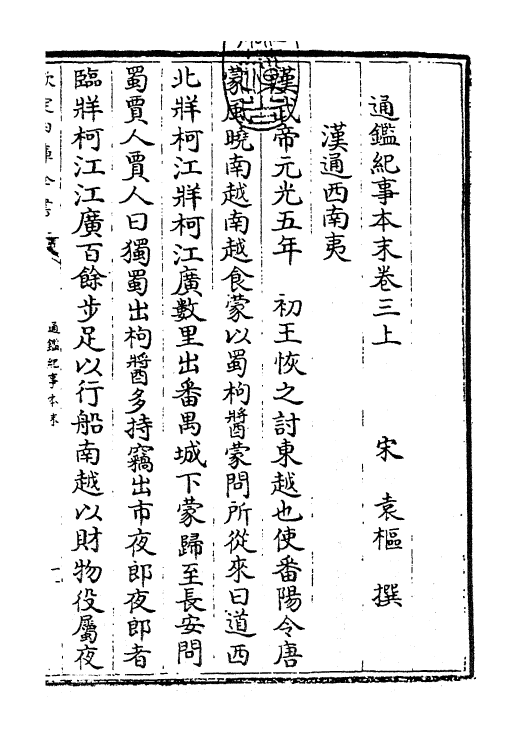 通鑑紀事本末卷三上
宋 袁樞 撰
漢通西南夷
漢武帝元光五年 初王恢之討東越也使番陽令唐
蒙風曉南越南越食蒙以蜀枸醬蒙問所從來曰道西
北牂柯江牂柯江廣數里出番禺城下蒙歸至長安問
蜀賈人賈人曰獨蜀出枸醬多持竊出市夜郎夜郎者
臨牂柯江江廣百餘步足以行船南越以財物役屬夜
欽定四庫全書
通鑑紀事本末
一